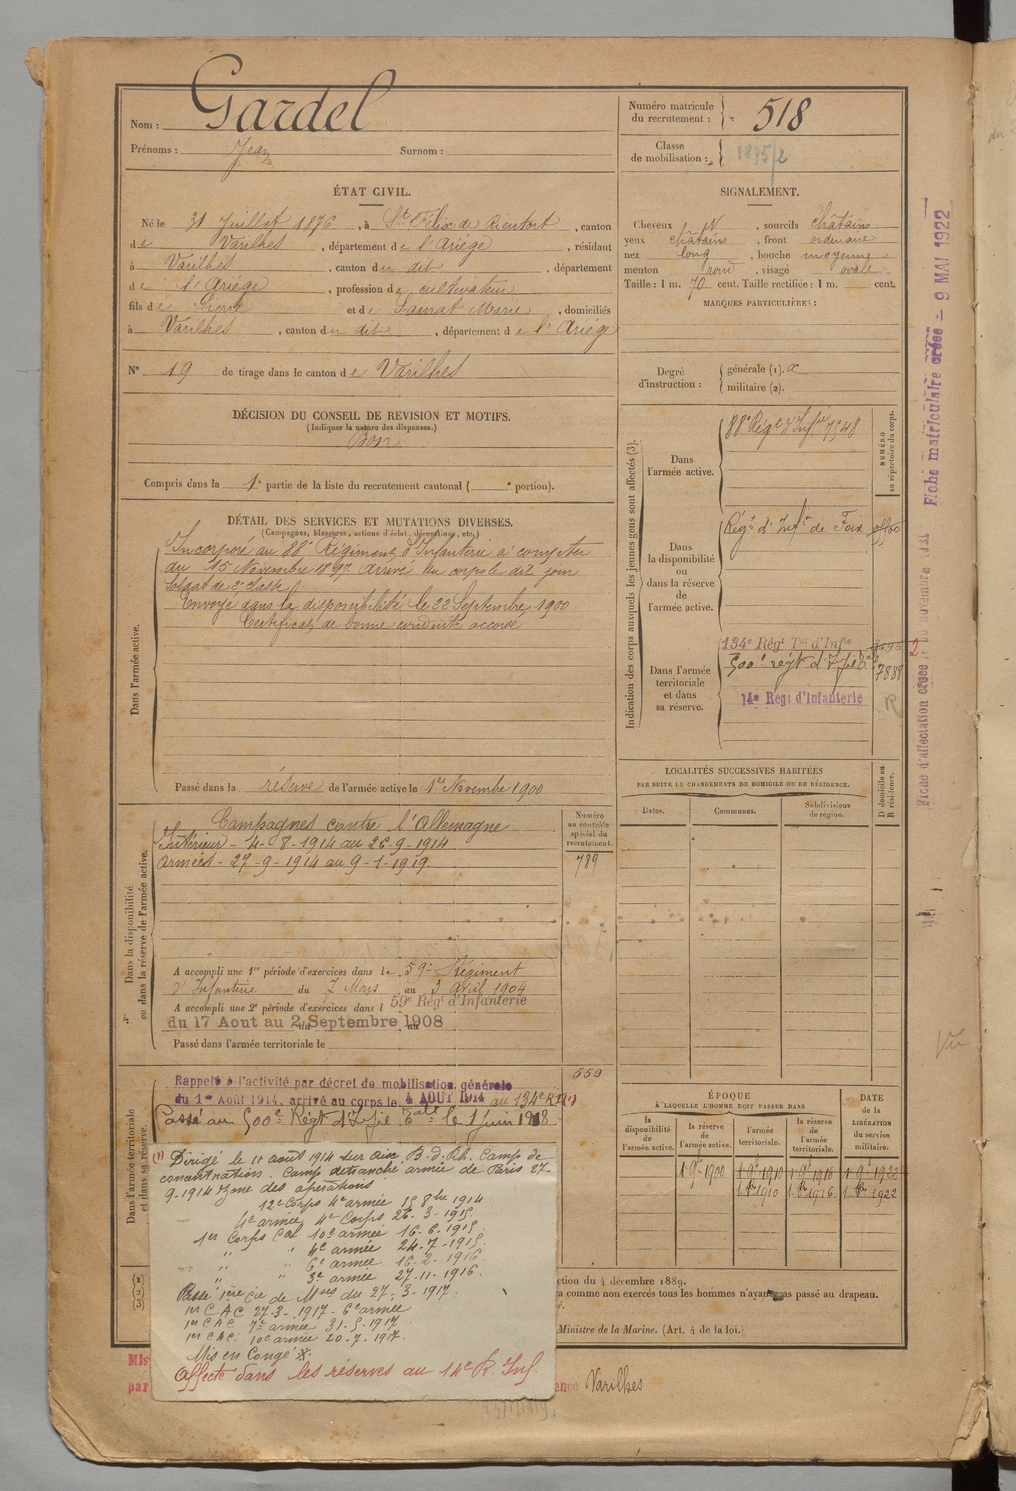 Nom : Gardel
Prénoms : Jean Surnom :
Numéro matricule du recrutement : 518
Classe de mobilisation : 1895/2
ÉTAT CIVIL.
Né le 31 Juillet 1876, à St Félix de Rieutort, canton
de Varilhes, département de l'Ariège, résidant
à Varilhes, canton du dit, département
de l'Ariège, profession de cultivateur
fils de Pierre et de Saurat Marie, domiciliés
à Varilhes, canton du dit, département de l'Ariège
N° 19 de tirage dans le canton de Varilhes
SIGNALEMENT.
Cheveux, sourcils châtains
yeux châtains, front ordinaire
nez long, bouche moyenne
menton rond, visage ovale
Taille : 1 m. 70 cent. Taille rectifiée : 1 m. cent.
MARQUES PARTICULIÈRES :
Degré d'instruction : générale (1). militaire (2).
DÉCISION DU CONSEIL DE REVISION ET MOTIFS.
(Indiquer la nature des dispenses.)
Bon
Compris dans la 1e partie de la liste du recrutement cantonal ( e portion).
DÉTAIL DES SERVICES ET MUTATIONS DIVERSES.
(Campagnes, blessures, actions d'éclat, décorations, etc.)
Dans l'armée active.
Incorporé au 88e Régiment d'Infanterie à compter
du 15 Novembre 1897 arrivé au corps le dit jour
Soldat de 2e classe
Envoyé dans la disponibilité le 22 Septembre 1900
Certificat de bonne conduite accordé
Passé dans la réserve de l'armée active le 1er Novembre 1900
Indication des corps auxquels les jeunes gens sont affectés (3).
NUMÉRO au répertoire du corps.
Dans l'armée active.
88e Régt d'Infie 7548
Dans la disponibilité ou dans la réserve de l'armée active.
Régt d'Infie de Foix
Dans l'armée territoriale et dans sa réserve.
134e Régt Tal d'Infie
500e régt d'Infie 7888
14e Régt d'Infanterie
R
LOCALITÉS SUCCESSIVES HABITÉES
PAR SUITE DE CHANGEMENTS DE DOMICILE OU DE RÉSIDENCE.
Dates. Communes. Subdivisions de région. D domicile ou R résidence.
Dans la disponibilité ou dans la réserve de l'armée active.
Campagnes contre l'Allemagne
Intérieur - 4-8-1914 au 26-9-1914
Armées - 27-9-1914 au 9-1-1919
Numéro au contrôle spécial du recrutement.
789
A accompli une 1re période d'exercices dans le 59e Régiment
d'Infanterie du 7 Mars au 3 Avril 1904
A accompli une 2e période d'exercices dans l 59e Régt d'Infanterie
du 17 Aout au 2 Septembre 1908
Passé dans l'armée territoriale le
559
Dans l'armée territoriale et dans sa réserve.
Rappelé à l'activité par décret de mobilisation générale
du 1er Août 1914, arrivé au corps le 4 AOUT 1914 au 134e RI (1)
Passé au 500e Régt d'Infie Tale le 1 juin 1918
(1) Dirigé le 11 août 1914 sur Aix B.d.Rh. Camp de
concentration Camp retranché armée de Paris 27-
9-1914 Zone des opérations
12e Corps 4e armée 15 8bre 1914
4e armée 4e Corps 26-3-1915
1er Corps Cal 10e armée 16-6-1915
" " 4e armée 24-7-1915
" " 6e armée 16-2-1916
" " 3e armée 27-11-1916
Passé 1ère Cie de Mses du 27-3-1917.
1er C A C 27-3-1917 - 6e armée
1er C.A.C. 7e armée 31-5-1917
1er C.A.C. 10e armée 20-7-1917.
Mis en Congé
Affecté dans les réserves au 14e R. Inf.
ÉPOQUE
À LAQUELLE L'HOMME DOIT PASSER DANS
la disponibilité de l'armée active. la réserve de l'armée active. l'armée territoriale. la réserve de l'armée territoriale.
DATE de la LIBÉRATION du service militaire.
1 9e 1900 1 9e 1910 1 9e 1916 1 9e 1922
1910 1916 1922
ction du 4 décembre 1889.
a comme non exercés tous les hommes n'ayant pas passé au drapeau.
Ministre de la Marine. (Art. 4 de la loi.)
Mis
par
ence Varilhes
Fiche matriculaire créée - 9 MAI 1922
Fiche d'affectation créée le novembre
Vu